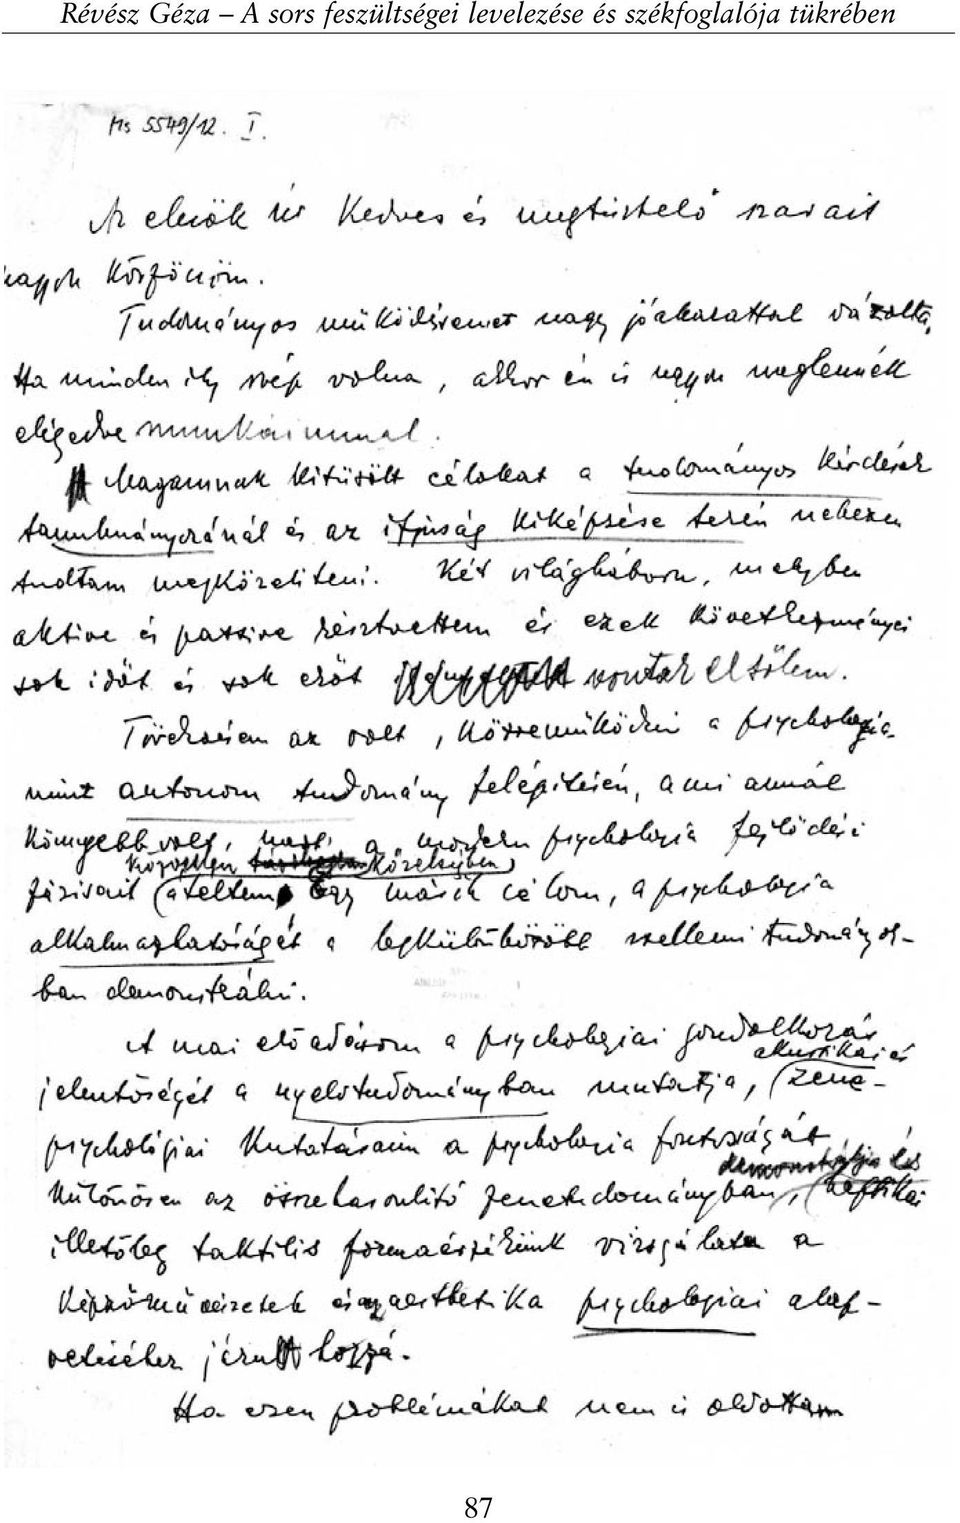 Révész Géza – A sors feszültségei levelezése és székfoglalója tükrében
Ms 5549/12. I.
Az elnök úr kedves és megtisztelő szavait
nagyon köszönöm.
Tudományos működésemet nagy jóakarattal vázolta.
Ha minden ily szép volna, akkor én is nagyon meglennék
elégedve munkáimmal.
Magamnak kitűzött célokat a tudományos kérdések
tanulmányozásánál és az ifjúság kiképzése terén nehezen
tudtam megközelíteni. Két világháború, melyben
aktive és passive résztvettem és ezek következményei
sok időt és sok erőt vontak el tőlem.
Törekvésem az volt, közreműködni a psychologia
mint autonom tudomány felépítésén, ami annál
könnyebb volt, mert a modern psychologia fejlődési
közvetlen közelségben
fázisait átéltem. Egy másik célom, a psychologia
alkalmazhatóságát a legkülönbözőbb szellemi tudományok-
ban demonstrálni.
A mai előadásom a psychologiai gondolkozás
akustikai és
jelentőségét a nyelvtudományban mutatja, zene-
psychológiai kutatásaim a psychologia fontosságát
demonstrálja és
különösen az összehasonlító zenetudományban, haptikai
illetőleg taktilis formaérzékünk vizsgálata a
képzőművészetek és az aesthetika psychologiai alap-
vetéséhez járult hozzá.
Ha ezen problémákat nem is oldottam
87